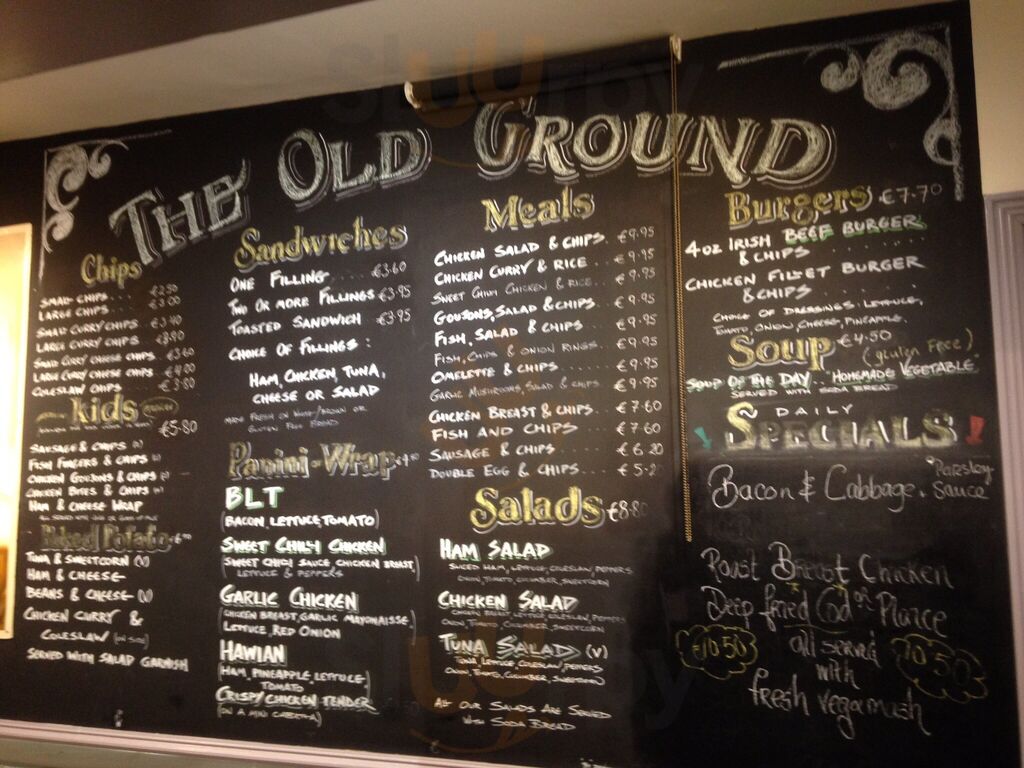 THE OLD GROUND
Chips
SMALL CHIPS . . . €2.50
LARGE CHIPS . . . €3.00
SMALL CURRY CHIPS €3.40
LARGE CURRY CHIPS €3.90
SMALL CURRY CHEESE CHIPS €3.60
LARGE CURRY CHEESE CHIPS €4.00
COLESLAW CHIPS €3.80
Kids
€5.80
SAUSAGE & CHIPS
FISH FINGERS & CHIPS
CHICKEN GOUJONS & CHIPS
CHICKEN BITES & CHIPS
HAM & CHEESE WRAP
Baked Potato
TUNA & SWEETCORN (V)
HAM & CHEESE
BEANS & CHEESE (V)
CHICKEN CURRY &
COLESLAW
SERVED WITH SALAD GARNISH
Sandwiches
ONE FILLING . . . . €3.60
TWO OR MORE FILLINGS €3.95
TOASTED SANDWICH €3.95
CHOICE OF FILLINGS :
HAM, CHICKEN, TUNA,
CHEESE OR SALAD
MADE FRESH ON WHITE/BROWN OR
GLUTEN FREE BREAD
Panini-Wrap
BLT
(BACON, LETTUCE, TOMATO)
SWEET CHILLI CHICKEN
(SWEET CHILLI SAUCE CHICKEN BREAST,
LETTUCE & PEPPERS
GARLIC CHICKEN
(CHICKEN BREAST, GARLIC MAYONNAISE,
LETTUCE, RED ONION
HAWIAN
(HAM, PINEAPPLE, LETTUCE,
TOMATO
CRISPY CHICKEN TENDER
(IN A MINI CIABATTA)
Meals
CHICKEN SALAD & CHIPS. €9.95
CHICKEN CURRY & RICE €9.95
SWEET CHILLI CHICKEN & RICE. €9.95
GOUJONS, SALAD & CHIPS €9.95
FISH, SALAD & CHIPS €9.95
FISH, CHIPS & ONION RINGS. €9.95
OMELETTE & CHIPS €9.95
GARLIC MUSHROOMS, SALAD & CHIPS €9.95
CHICKEN BREAST & CHIPS . €7.60
FISH AND CHIPS €7.60
SAUSAGE & CHIPS €6.20
DOUBLE EGG & CHIPS
Salads €8.80
HAM SALAD
SLICED HAM, LETTUCE, COLESLAW, PEPPERS
ONION, TOMATO, CUCUMBER, SWEETCORN
CHICKEN SALAD
CHICKEN BREAST, LETTUCE, COLESLAW, PEPPERS
ONION, TOMATO, CUCUMBER, SWEETCORN
TUNA SALAD (V)
TUNA, LETTUCE, COLESLAW, PEPPERS
ONION, TOMATO, CUCUMBER, SWEETCORN
ALL OUR SALADS ARE SERVED
WITH SODA BREAD
Burgers €7.70
4OZ IRISH BEEF BURGER
& CHIPS
CHICKEN FILLET BURGER
& CHIPS
CHOICE OF DRESSINGS: LETTUCE,
TOMATO, ONION, CHEESE, PINEAPPLE.
Soup €4.50
(gluten free)
SOUP OF THE DAY. HOMEMADE VEGETABLE
SERVED WITH SODA BREAD
DAILY
SPECIALS
Bacon & Cabbage. Parsley
Sauce
Roast Breast Chicken
or
Deep fried Cod or Plaice
€10.50 all served 10.50
with
fresh veg & mash